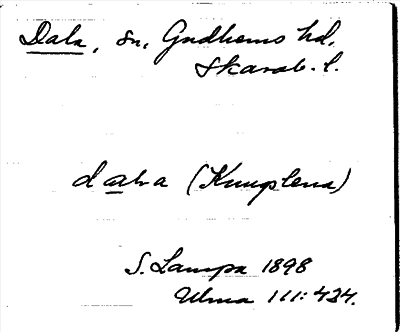 Dala, sn, Gudhems hd,
Skarab. l.
dala (Kungslena)
S. Lampa 1898
Ulma 111:434.